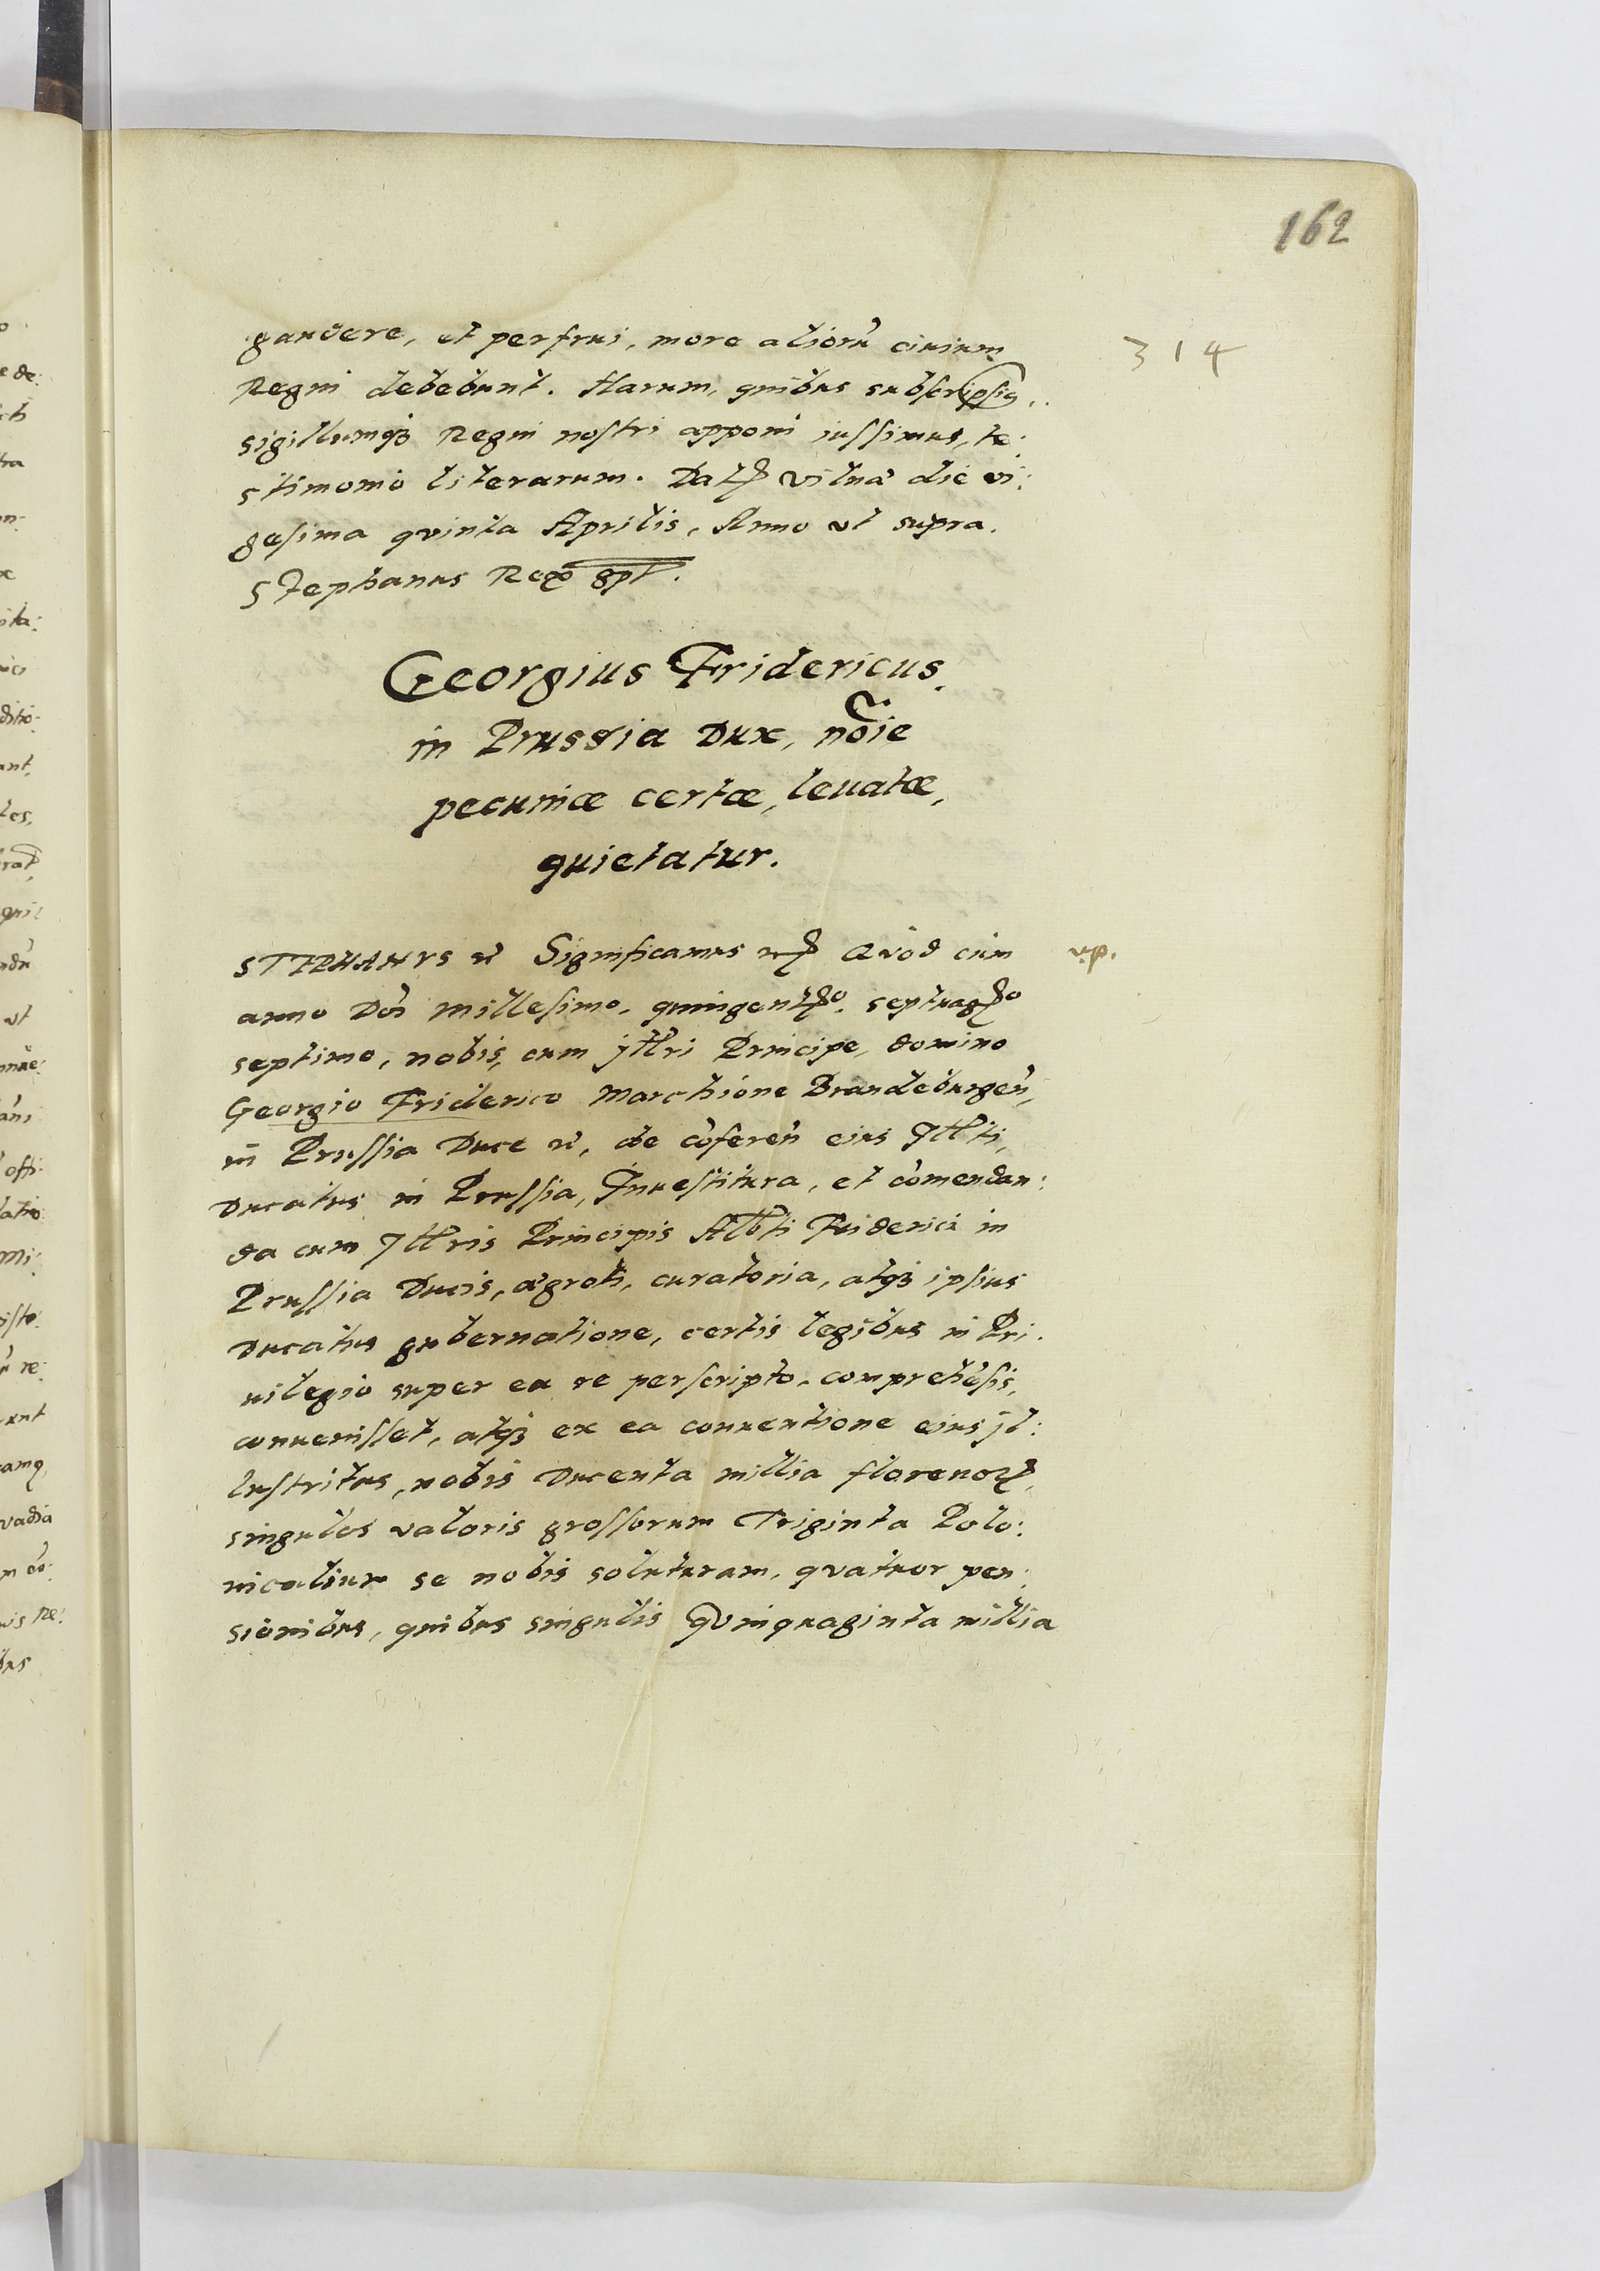 162
314
gaudere, et perfrui, more alioru ciuium
Regni debebunt. Harum, quibus subscripsimus,
sigillumqz Regni nostri apponi iussimus, te:
stimonio literarum. Dat Vilnæ die vi:
gesima qvinta Aprilis, Anno vt supra.
Stephanus Rex spt.
Georgius Fridericus
in Prussia Dux, nōie
pecuniæ certæ, leuatæ,
quietatur.
STEPHANVS Significamus Qvod cum
v.p.
anno Dni Millesimo, quingento, septuago
septimo, nobis, cum jllri Principe, domino
Georgio Friderico Marchione Brandeburgen,
in Prussia Duce de coferen eius Illti,
Ducatus in Prussia, Inuestitura, et comendan:
da cum Illris Principis Alberti Friderici in
Prussia Ducis, ægroti, curatoria, atqz ipsius
Ducatus gubernatione, certis legibus in Pri:
uilegio super ea re perscripto, comprehesis,
conuenisset, atqz ex ea conuentione eius jl:
lustritas, nobis Ducenta millia floreno,
singulos valoris grossorum Triginta Polo:
nicalium se nobis soluturam, qvatuor pen:
sionibus, quibus singulis Qvinquaginta millia